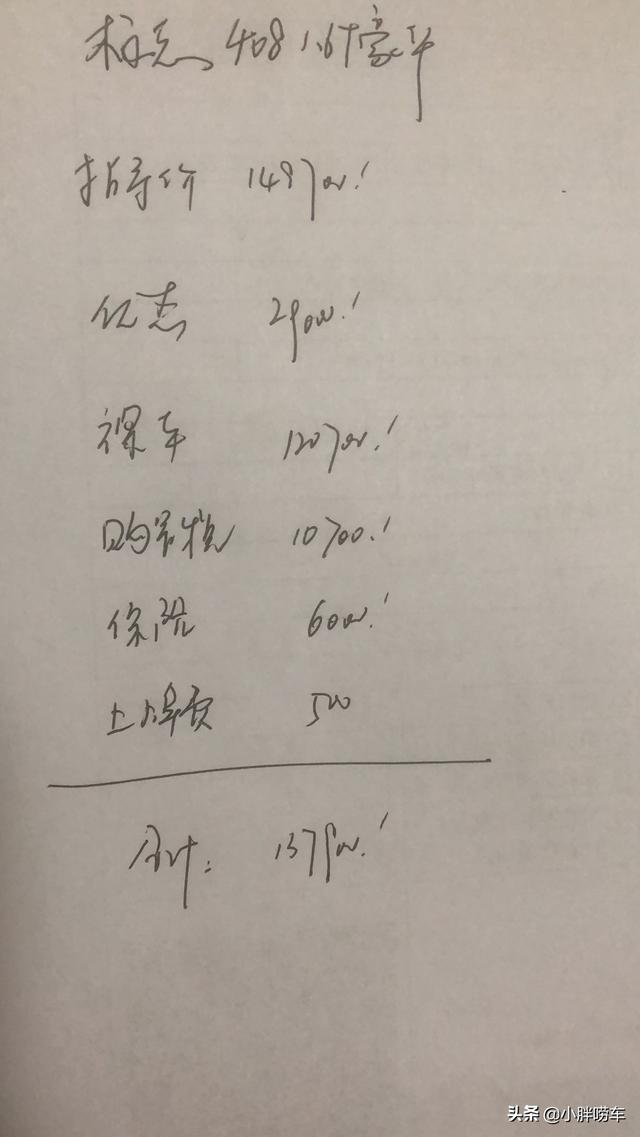 标志 408 1.6T豪华
指导价 149700.
优惠 29000.
裸车 120700.
购置税 10700.
保险 6000.
上牌费 500
合计: 137900.
头条 @小胖唠车